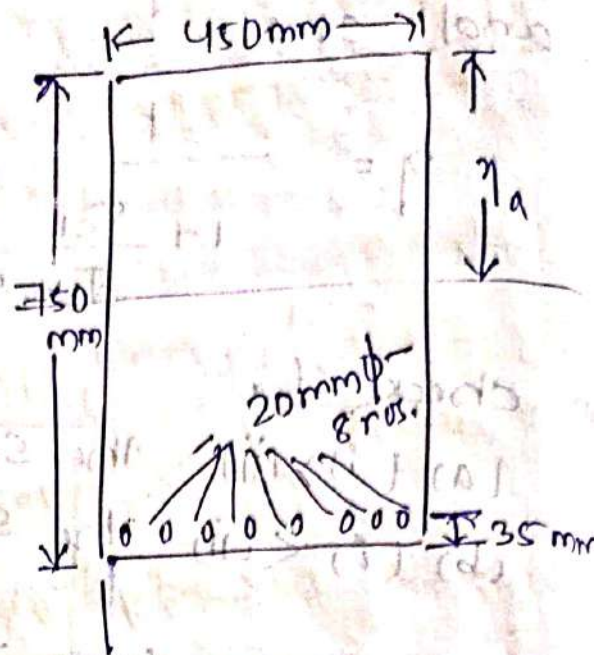 450mm
750
mm
η a
20mm ϕ
8 nos.
35 mm